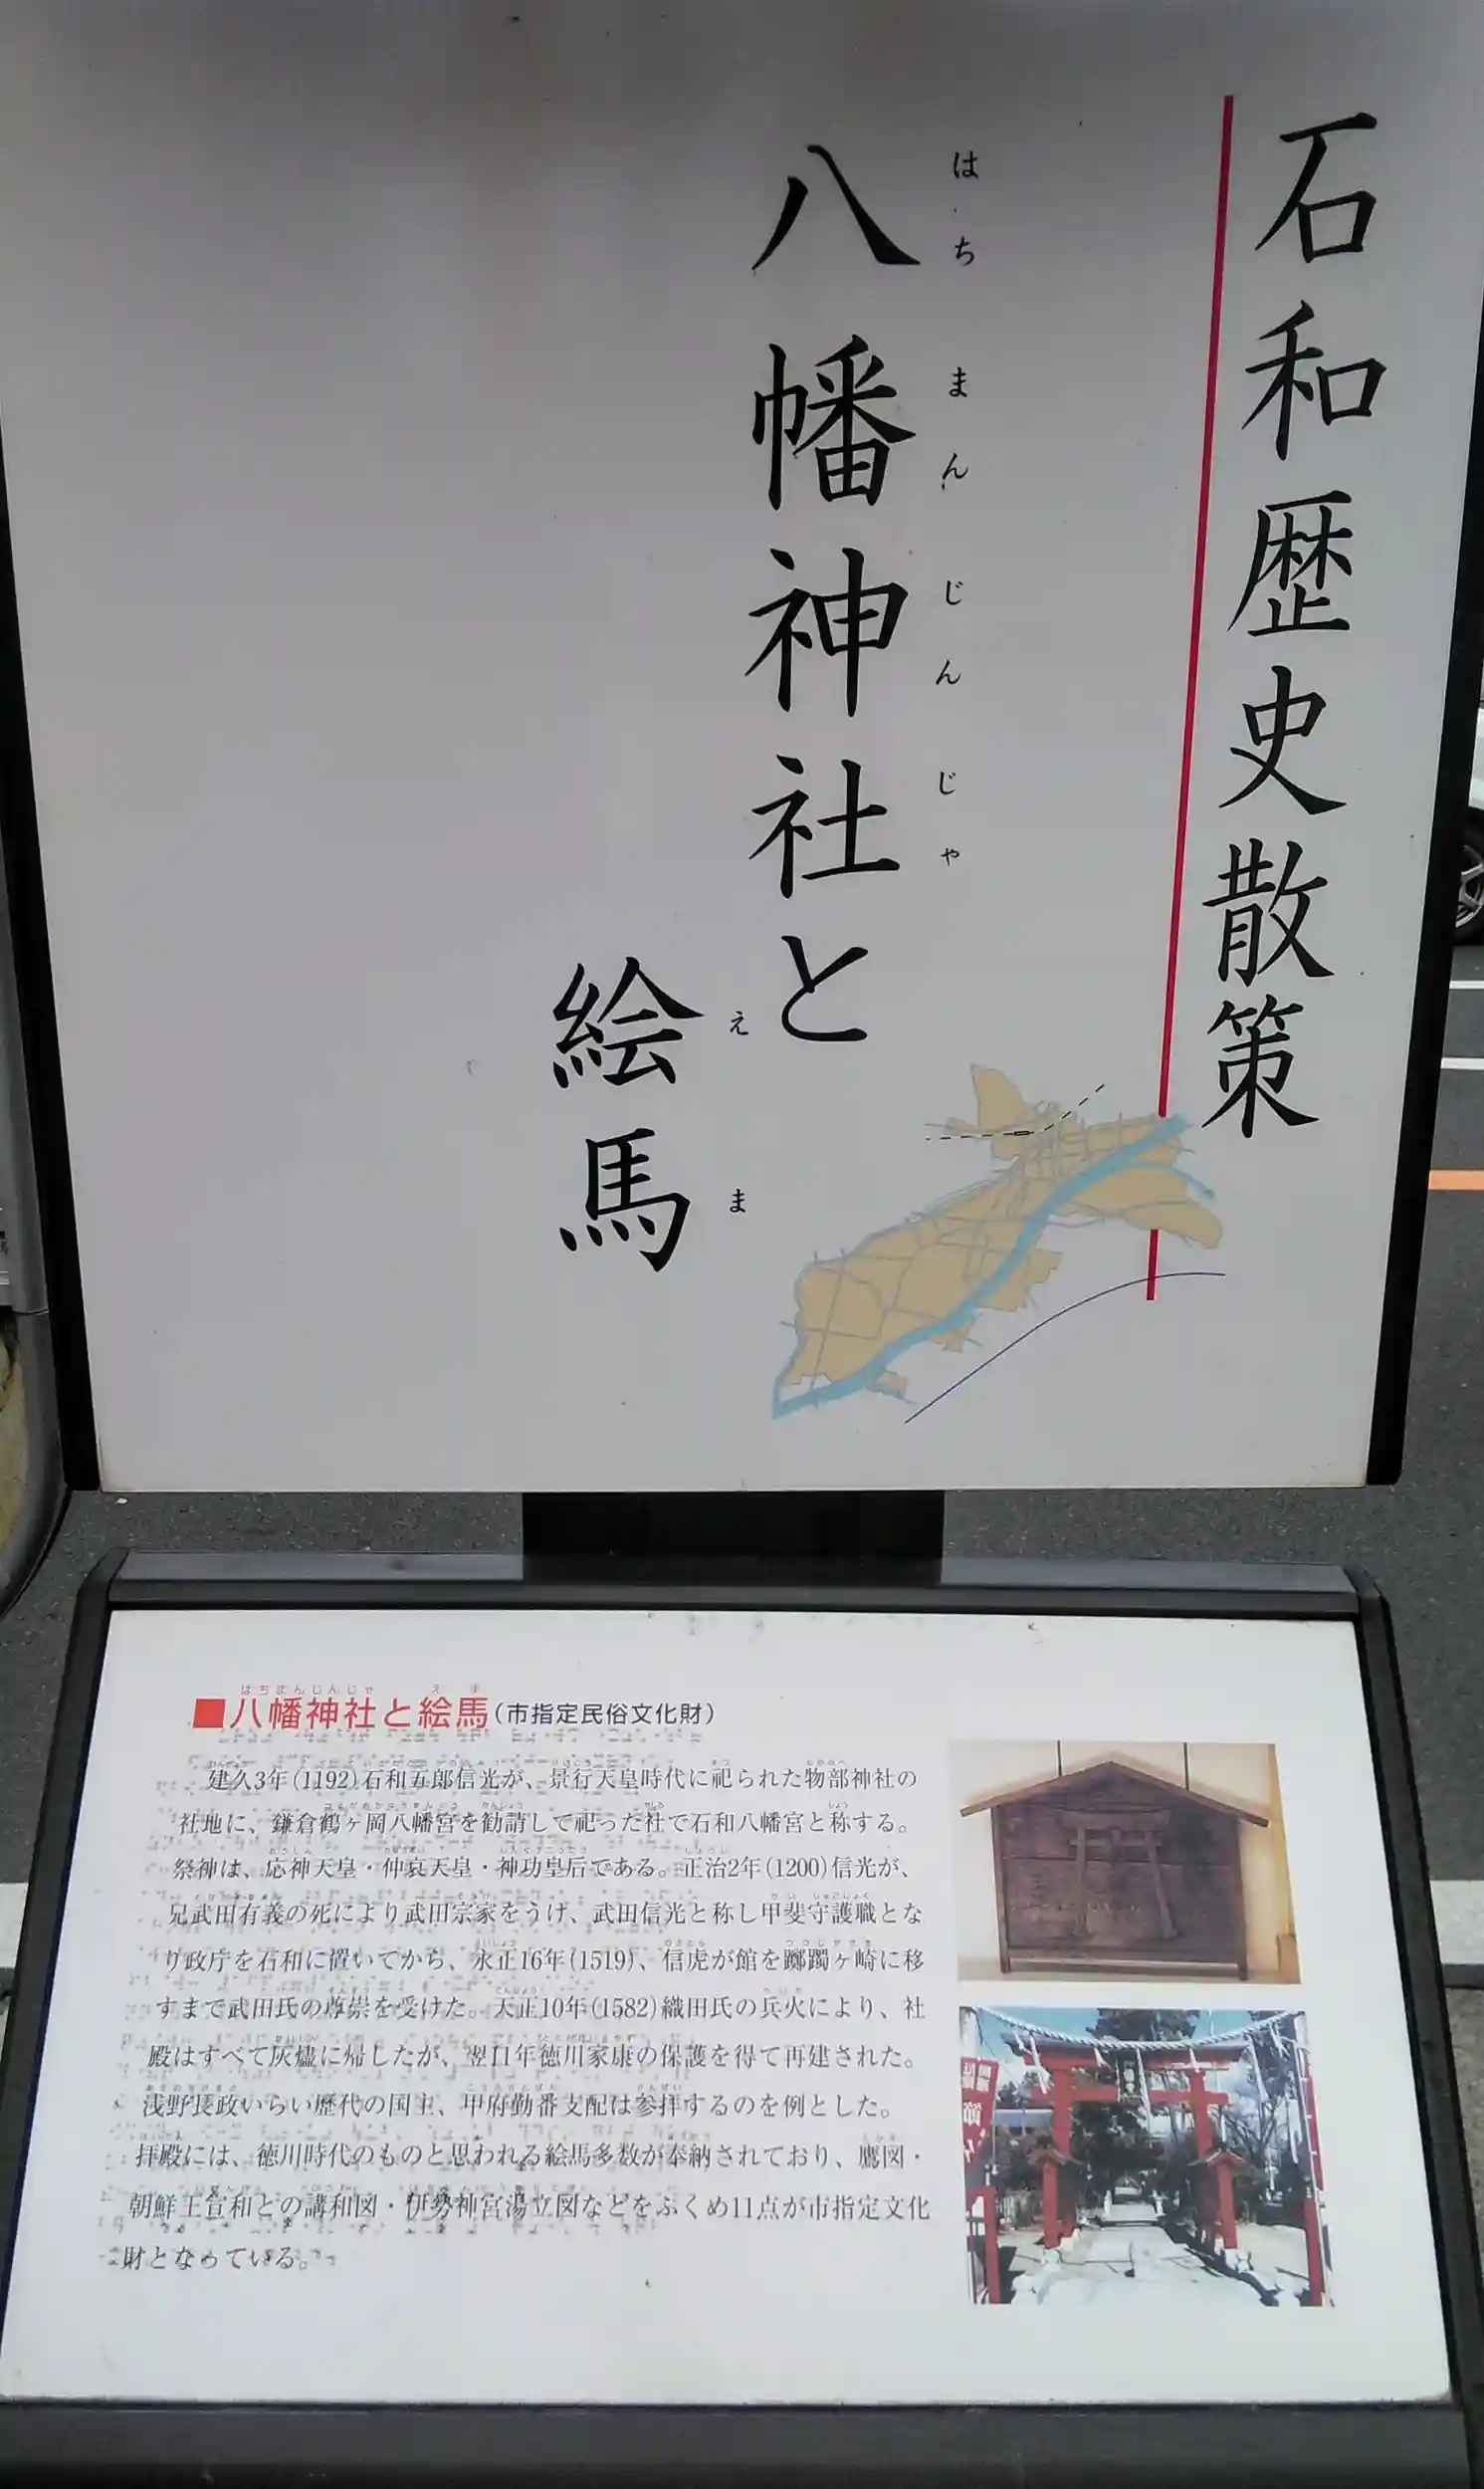 石和歴史散策
八幡神社と
はちまんじんじゃ
絵馬
えま
はちまんじんじゃ　えま
■八幡神社と絵馬(市指定民俗文化財)
建久3年(1192)石和五郎信光が、景行天皇時代に祀られた物部神社の
社地に、鎌倉鶴ヶ岡八幡宮を勧請して祀った社で石和八幡宮と称する。
祭神は、応神天皇・仲哀天皇・神功皇后である。正治2年(1200)信光が、
兄武田有義の死により武田宗家をうけ、武田信光と称し甲斐守護職とな
り政庁を石和に置いてから、永正16年(1519)、信虎が館を躑躅ヶ崎に移
すまで武田氏の尊崇を受けた。天正10年(1582)織田氏の兵火により、社
殿はすべて灰燼に帰したが、翌11年徳川家康の保護を得て再建された。
浅野長政いらい歴代の国主、甲府勤番支配は参拝するのを例とした。
拝殿には、徳川時代のものと思われる絵馬多数が奉納されており、鷹図・
朝鮮王宣和との講和図・伊勢神宮湯立図などをふくめ11点が市指定文化
財となっている。